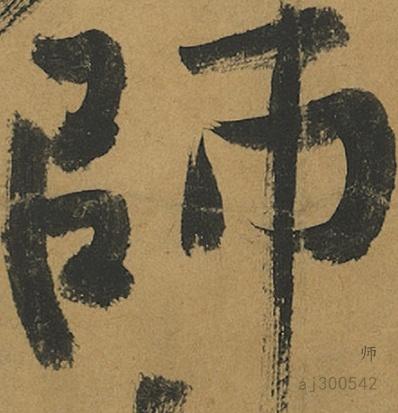 師
师
aj300542